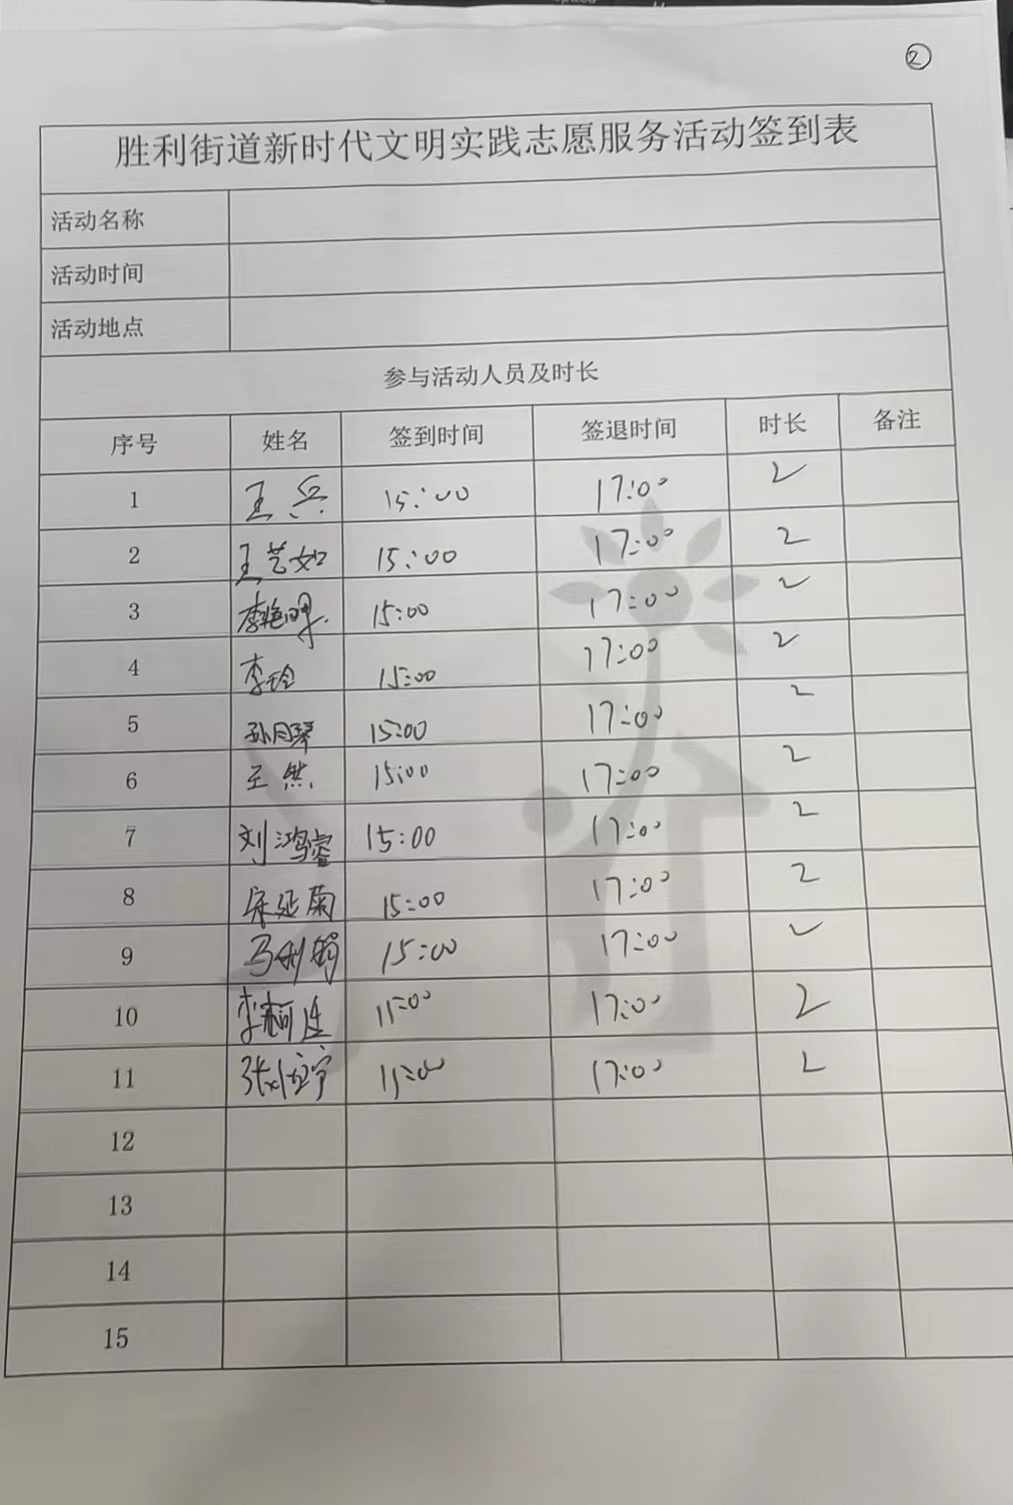 ②
胜利街道新时代文明实践志愿服务活动签到表
活动名称
活动时间
活动地点
参与活动人员及时长
序号 姓名 签到时间 签退时间 时长 备注
1 王兵 15:00 17:00 2
2 王艺如 15:00 17:00 2
3 李艳 15:00 17:00 2
4 李玲 15:00 17:00 2
5 孙月琴 15:00 17:00 2
6 王然 15:00 17:00 2
7 刘鸿睿 15:00 17:00 2
8 宋延菊 15:00 17:00 2
9 马利娟 15:00 17:00 2
10 李 15:00 17:00 2
11 张 15:00 17:00 2
12
13
14
15